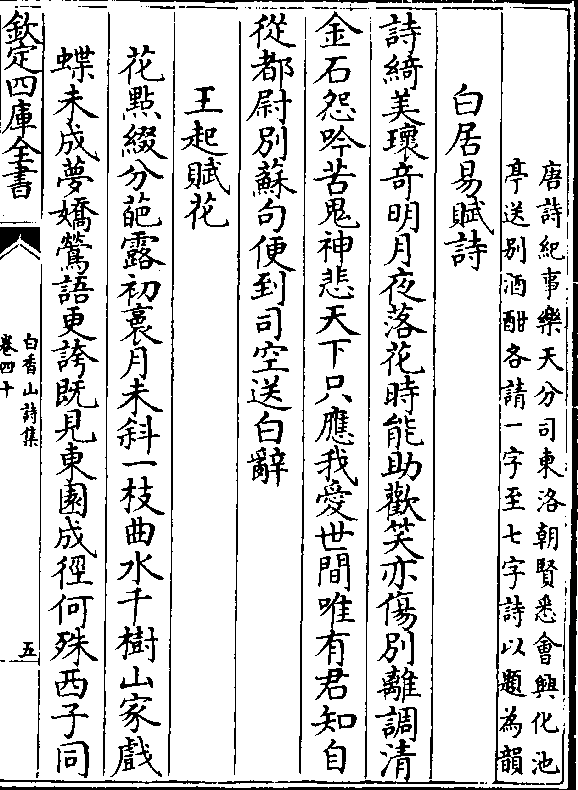 唐詩紀事樂天分司東洛朝賢悉會興化池
亭送别酒酣各請一字至七字詩以題為韻
白居易賦詩
詩綺美瓌竒明月夜落花時能助歡笑亦傷別離調清
金石怨吟苦鬼神悲天下只應我愛世間唯有君知自
從都尉別蘇句便到司空送白辭
王起賦花
花點綴分葩露初裛月未斜一枝曲水千樹山家戲
蝶未成夢嬌鶯語更誇既見東園成徑何殊西子同
欽定四庫全書
白香山詩集
卷四十
五